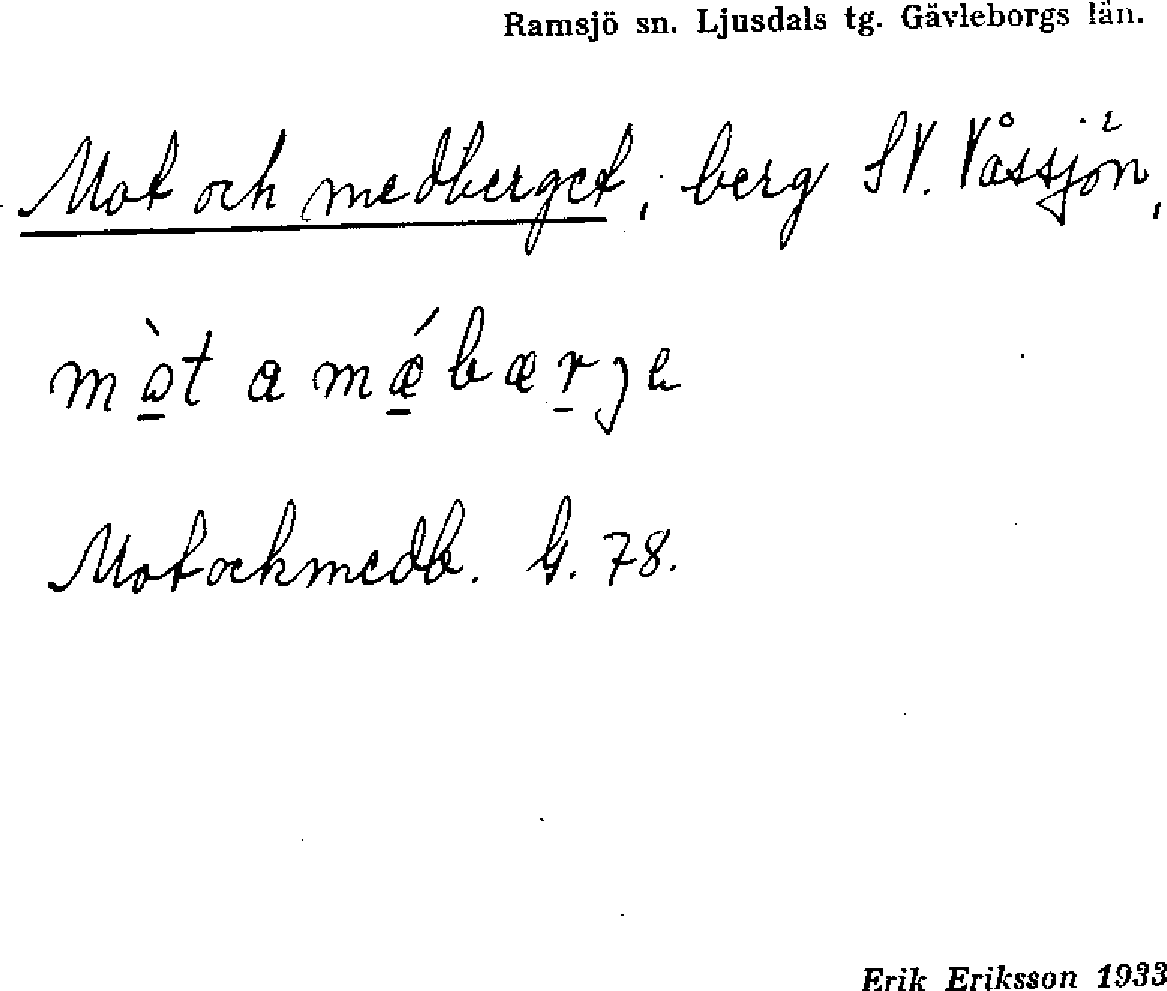 Ramsjö sn. Ljusdals tg. Gävleborgs län.
Mot och medberget, berg SV. Våssjön,
mȯ̠̀t a mǽ̠bær̠je
Motochmedb. G. 78.
Erik Eriksson 1933